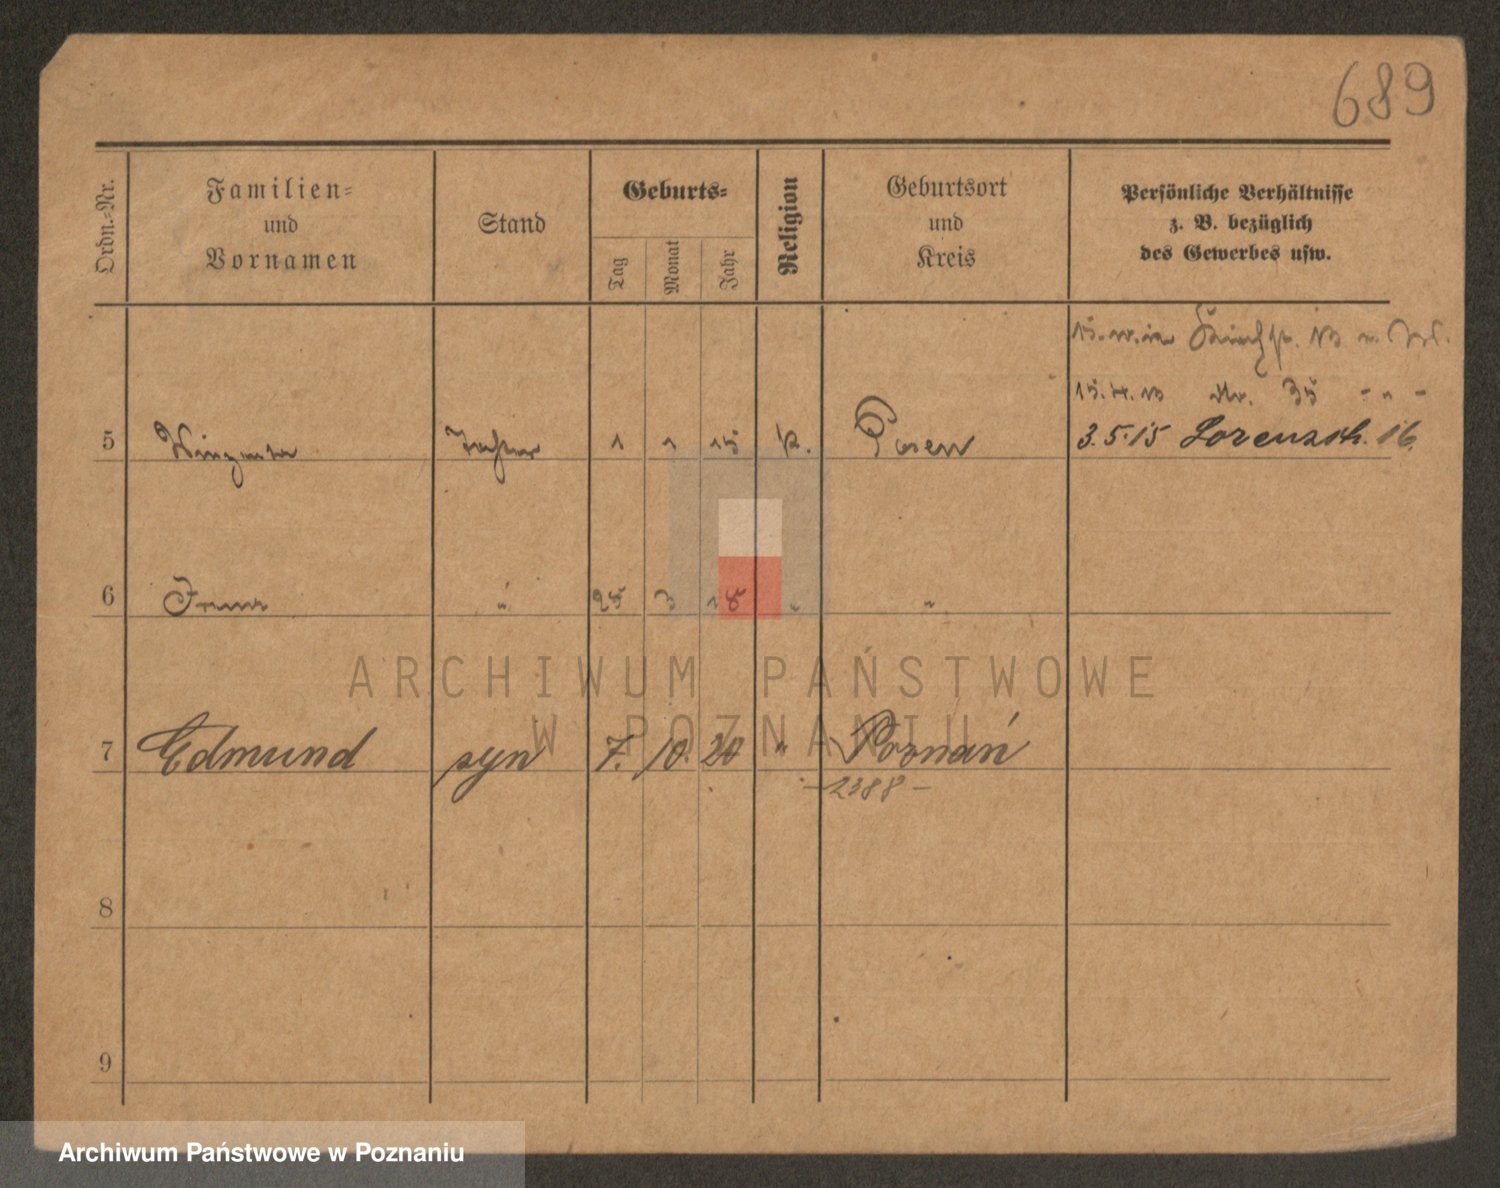 689
Ordn.=Nr.
Familien=
und
Vornamen
Stand
Geburts=
Tag
Monat
Jahr
Religion
Geburtsort
und
Kreis
Persönliche Verhältnisse
z. B. bezüglich
des Gewerbes usw.
15.4.13 Nr. 35 - " -
5 Tochter 1 1 15 k. Posen 3.5.15 Lorenzstr. 16
6 " 25 3 18 " "
7 Edmund syn 7. 10. 20 " Poznań
- 2388 -
8
9
ARCHIWUM PAŃSTWOWE
W POZNANIU
Archiwum Państwowe w Poznaniu